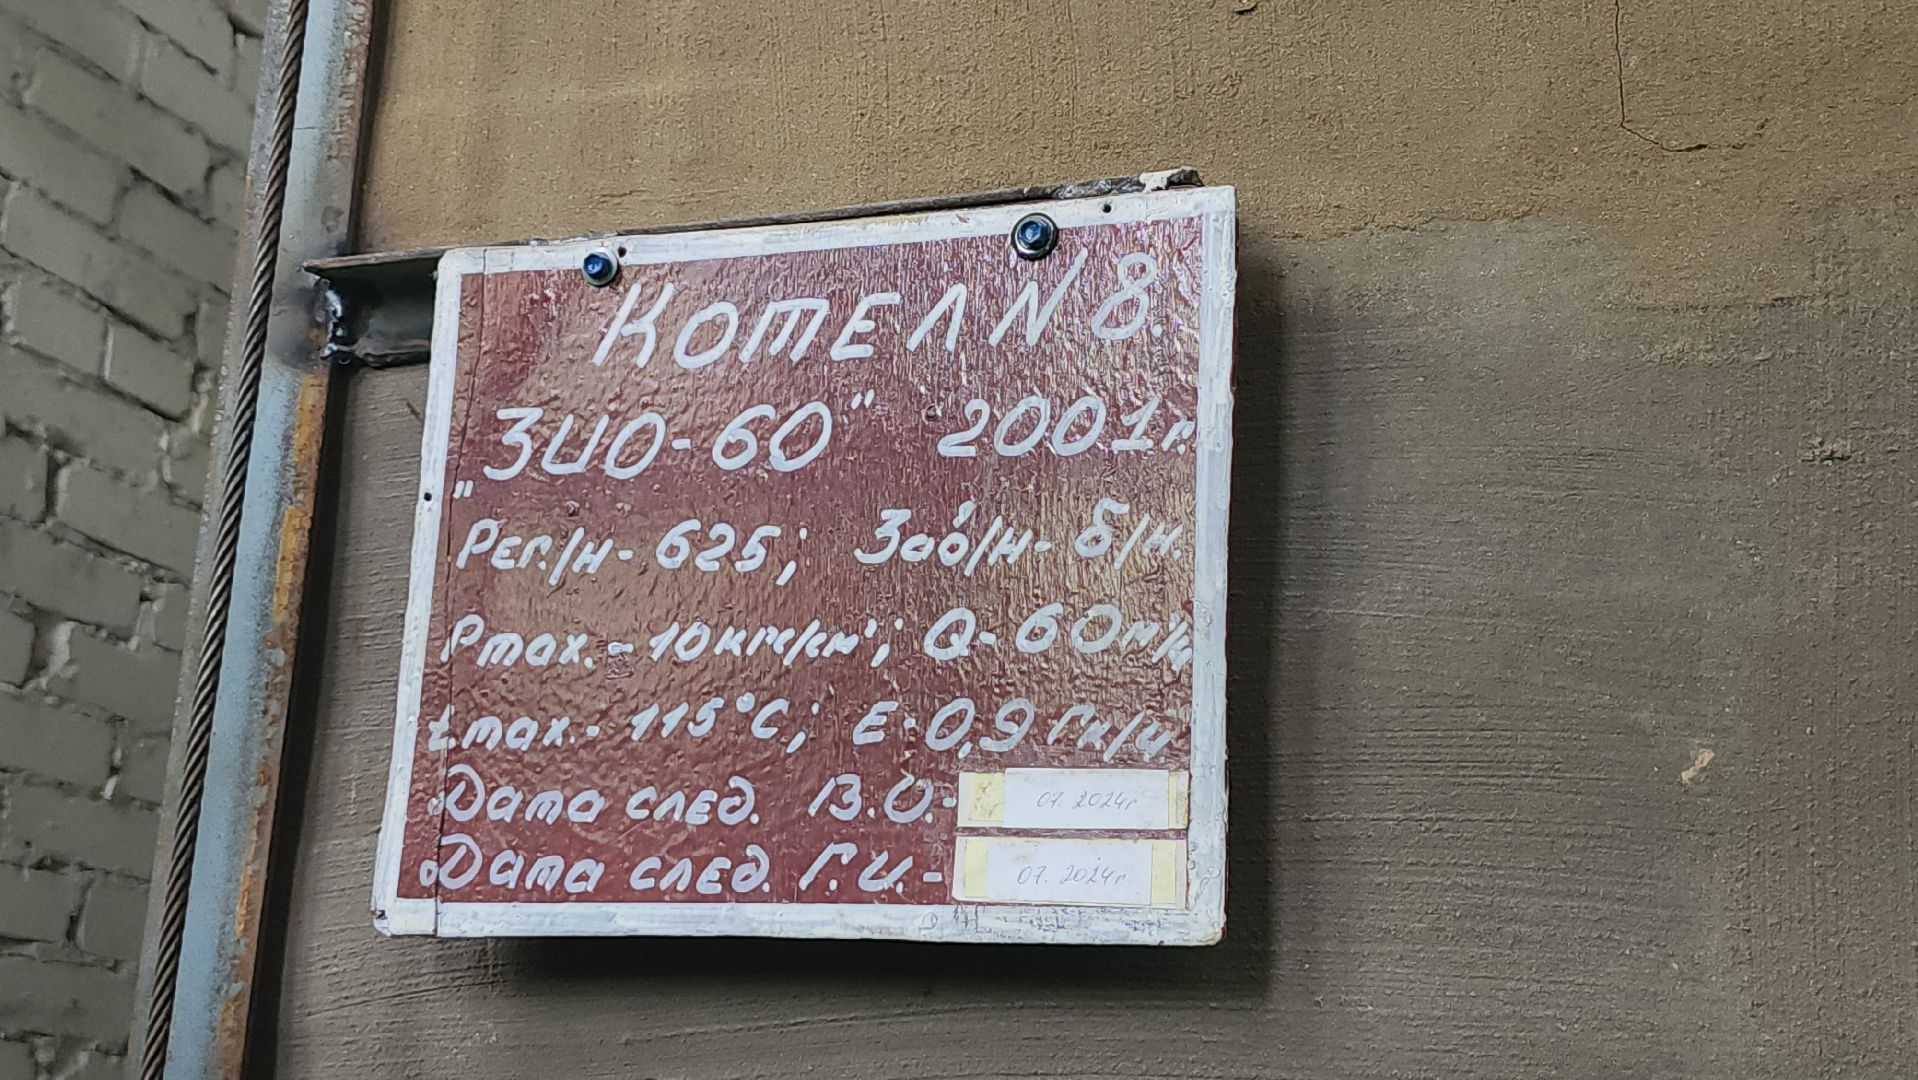 Котел N 8.
"ЗИО-60" 2001г.
Рег./н- 625; Зав/н- б/н.
Pmax.- 10кгс/см²; Q- 60м³/ч
tmax.- 115°C; E- 0,9 Гк/ч
Дата след. В.О.- 07. 2024г
Дата след. Г.И.- 07. 2024г